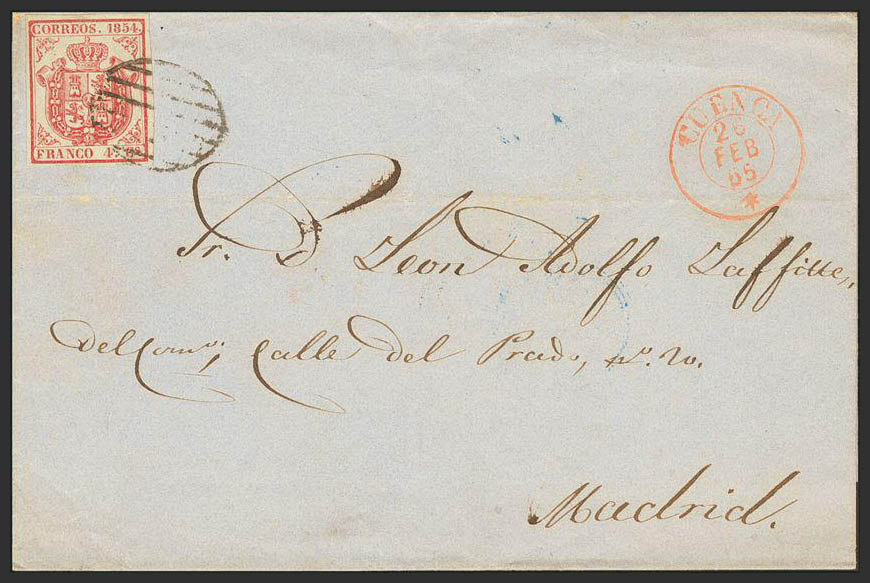 CORREOS. 1854.
FRANCO 4
CUENCA
26
FEB
55
Sr. D Leon Adolfo Laffitte,
del Como, Calle del Prado, no. 20.
Madrid.